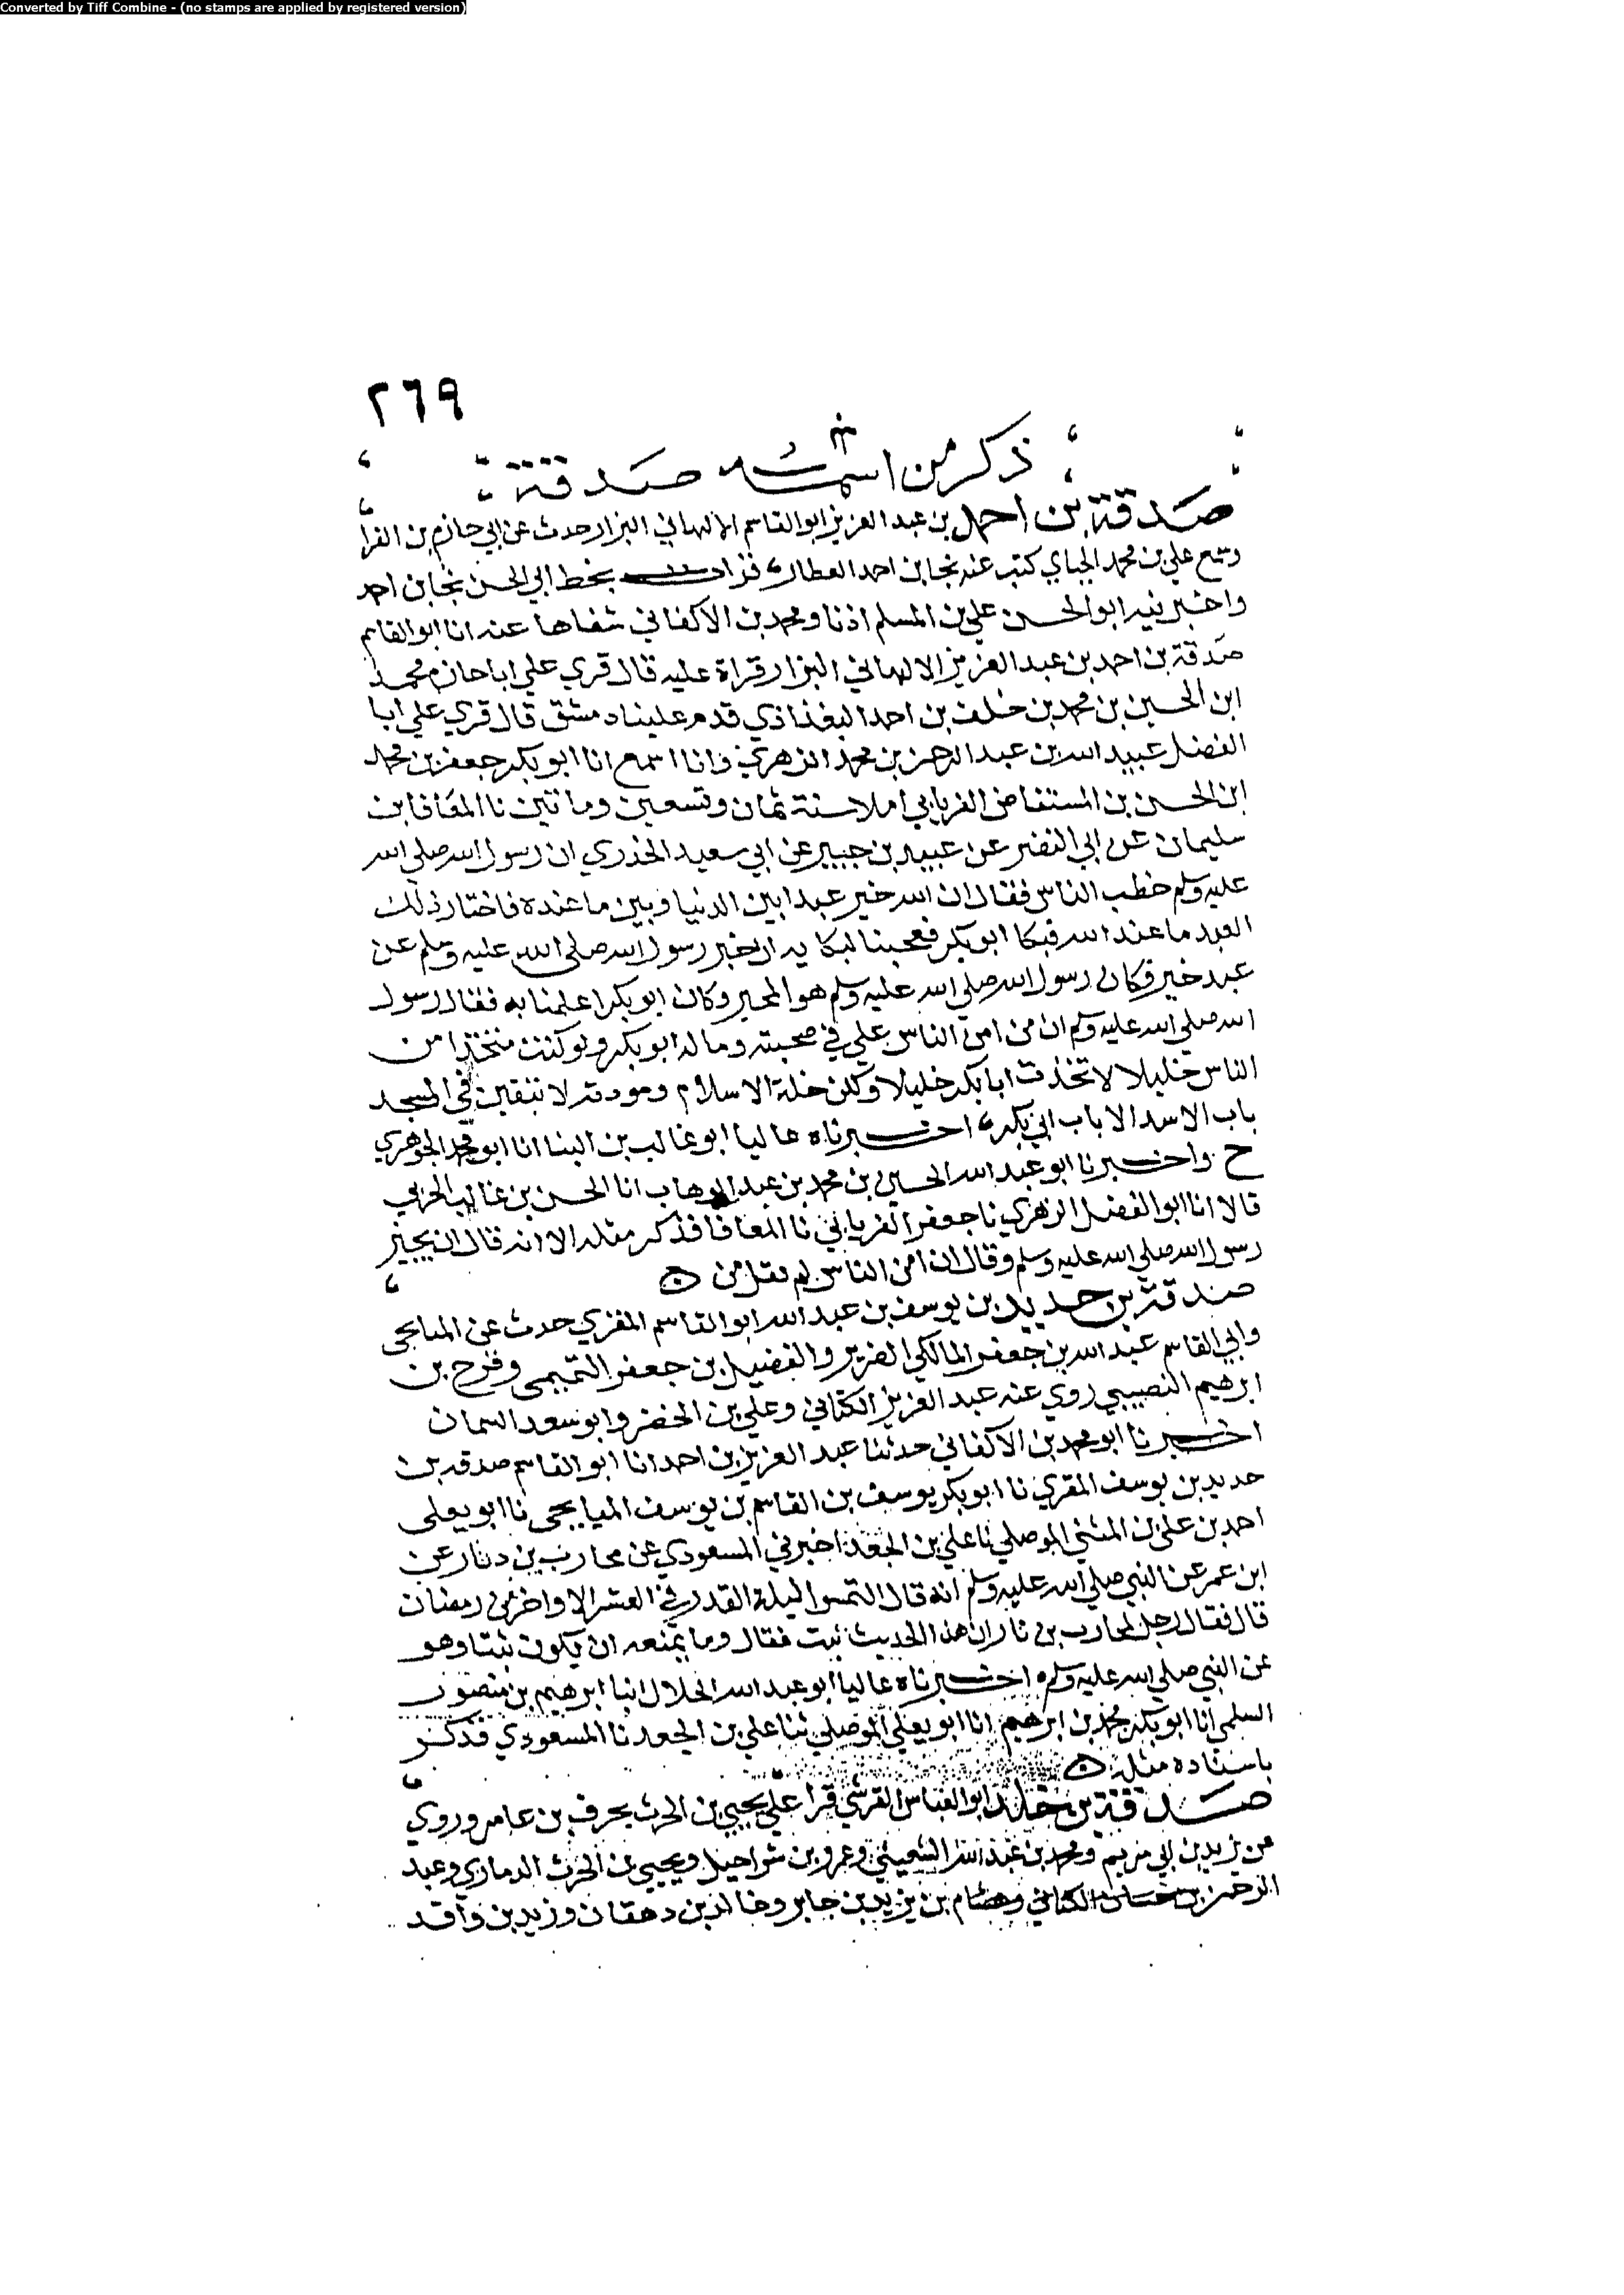 Converted by Tiff Combine - (no stamps are applied by registered version)
٢٦٩
ذكر من اسمه صدقة
صدقة بن احمد بن عبد العزيز ابو القاسم الالهاني البزار حدث عن ابي حازم بن الفرا
وسمع علي بن محمد الجياي كتب عنه نجا بن احمد العطار قرات بخط ابي الحسن نجا بن احمد
واخبرنيه ابو الحسن علي بن المسلم اذنا ومحمد بن الاكفاني شفاها عنه انا ابو القاسم
صدقة بن احمد بن عبد العزيز الالهاني البزار قراة عليه قال قري علي ابا حازم محمد
ابن الحسين بن محمد بن خلف بن احمد البغداذي قدم علينا دمشق قال قري علي ابا
الفضل عبيد الله بن عبد الرحمن بن محمد الزهري وانا اسمع انا ابو بكر جعفر بن محمد
ابن الحسن بن المستفاض الفريابي املا سنة ثمان وتسعين وماتين نا المعافا بن
سليمان عن ابي النضر عن عبيد بن جبير عن ابي سعيد الخدري ان رسول الله صلى الله
عليه وسلم خطب الناس فقال ان الله خير عبدا بين الدنيا وبين ما عنده فاختار ذلك
العبد ما عند الله فبكا ابو بكر فعجبنا لبكايه ان خبر رسول الله صلى الله عليه وسلم عن
عبد خير فكان رسول الله صلى الله عليه وسلم هو المخير وكان ابو بكر اعلمنا به فقال رسول
الله صلى الله عليه وسلم ان من امن الناس علي في صحبته وماله ابو بكر ولو كنت متخذا من
الناس خليلا لاتخذت ابا بكر خليلا ولكن خلة الاسلام ومودته لا تبقين في المسجد
باب الا سد الا باب ابي بكر اخبرناه عاليا ابو غالب بن البنا انا ابو محمد الجوهري
ح واخبرنا ابو عبد الله الحسين بن محمد بن عبد الوهاب انا الحسن بن غالب الحربي
قالا انا ابو الفضل الزهري نا جعفر الفريابي نا المعافا فذكر مثله الا انه قال ان يخير
رسول الله صلى الله عليه وسلم وقال ان امن الناس لم يقل من
صدقة بن حديد بن يوسف بن عبد الله ابو القاسم المقري حدث عن الميانجي
وابي القاسم عبد الله بن جعفر المالكي الضرير والفضيل بن جعفر التميمي وفرح بن
ابرهيم النصيبي روي عنه عبد العزيز الكتاني وعلي بن الخضر وابو سعد السمان
اخبرنا ابو محمد بن الاكفاني حدثنا عبد العزيز بن احمد انا ابو القاسم صدقه بن
حديد بن يوسف المقري نا ابو بكر يوسف بن القاسم بن يوسف الميانجي نا ابو يعلى
احمد بن علي بن المثني الموصلي نا علي بن الجعد اخبرني المسعودي عن محارب بن دثار عن
ابن عمر عن النبي صلي الله عليه وسلم انه قال التمسوا ليلة القدر في العشر الاواخر من رمضان
قال فقال رجل لمحارب بن دثار ان هذا الحديث ثبت فقال وما يمنعه ان يكون ثبتا وهو
عن النبي صلى الله عليه وسلم اخبرناه عاليا ابو عبد الله الخلال انبا ابرهيم بن منصور
السلمي انا ابو بكر محمد بن ابرهيم انا ابو يعلي الموصلي ثنا علي بن الجعد نا المسعودي فذكر
باسناده مثله
صدقة بن خالد ابو العباس القرشي قرا علي يحيى بن الحرث بحرف بن عامر وروي
عن يزيد بن ابي مريم ومحمد بن عبد الله الشعيثي وعمرو بن شراحيل ويحيي بن الحرث الدماري وعبد
الرحمن بن حسان الكناني وهشام بن يزيد بن جابر وخالد بن دهقان وزيد بن واقد